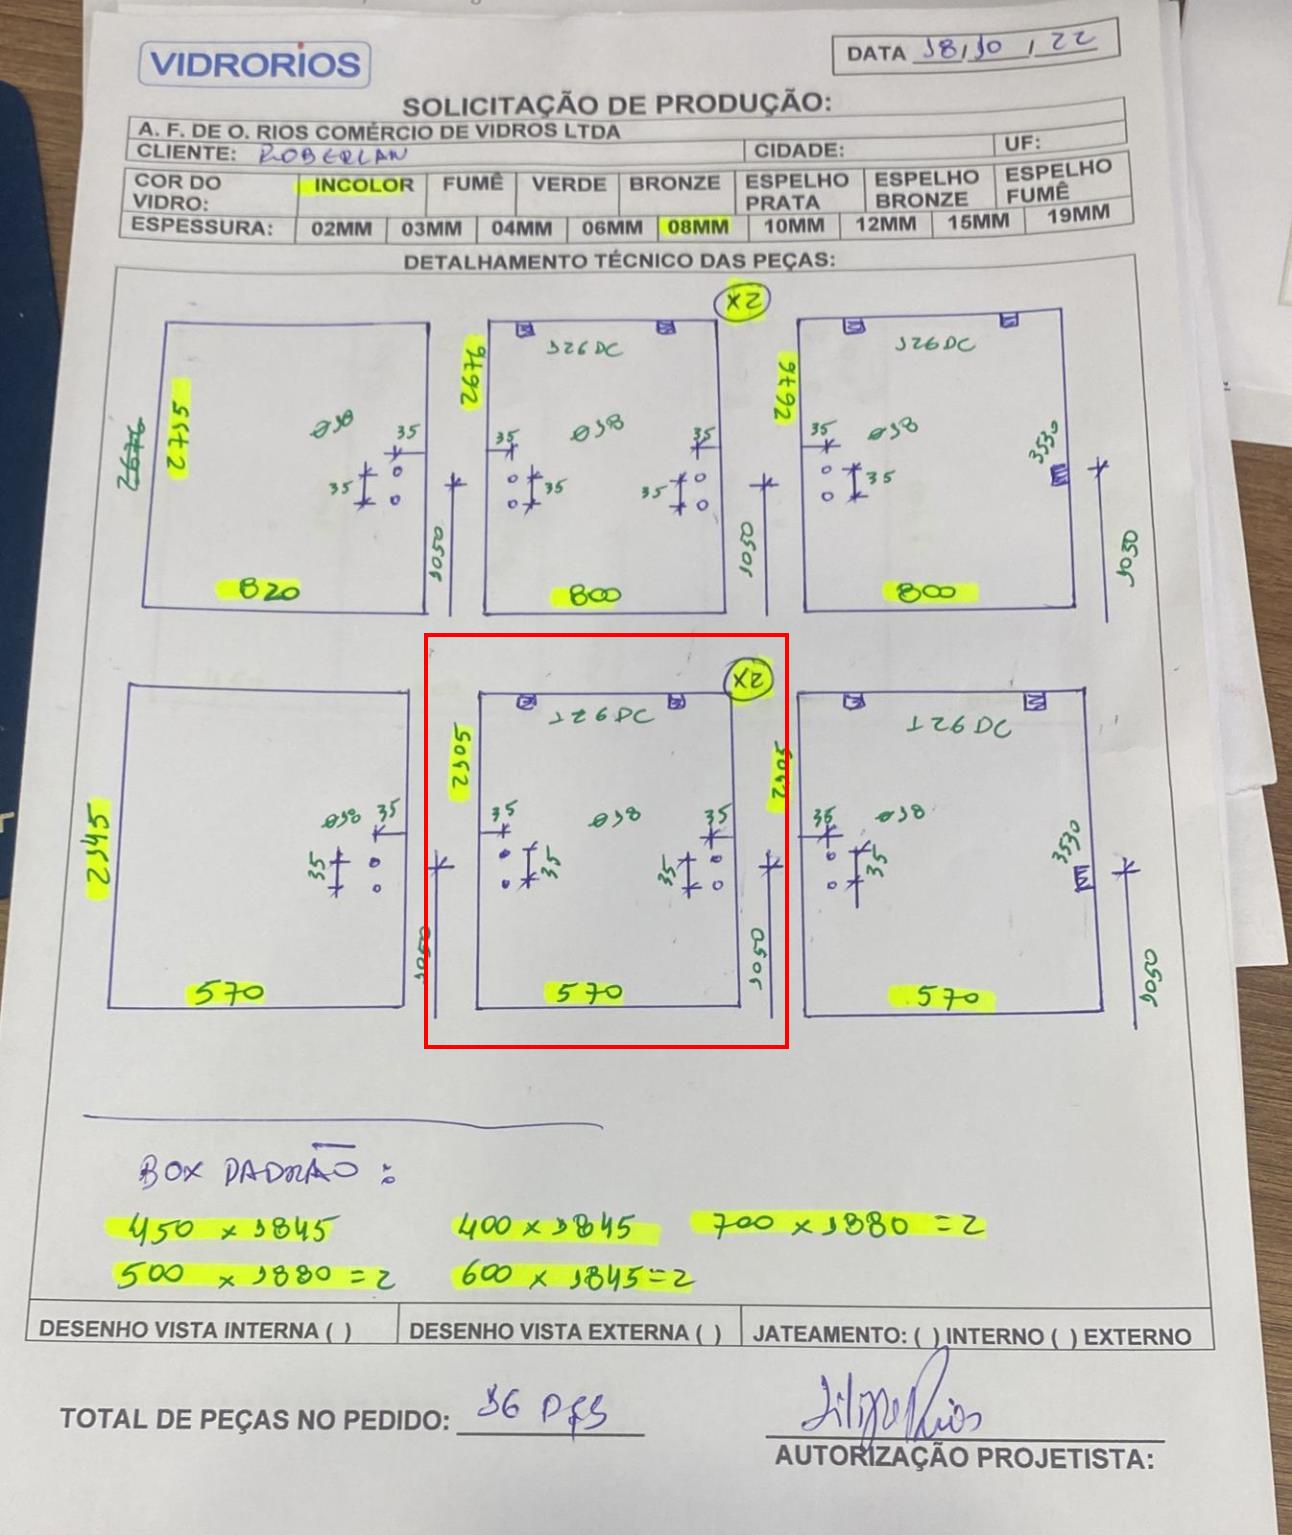 VIDRORIOS
DATA 18/10/22
SOLICITAÇÃO DE PRODUÇÃO:
A. F. DE O. RIOS COMÉRCIO DE VIDROS LTDA
CLIENTE: ROBERLAN CIDADE: UF:
COR DO VIDRO: INCOLOR FUMÊ VERDE BRONZE ESPELHO PRATA ESPELHO BRONZE ESPELHO FUMÊ
ESPESSURA: 02MM 03MM 04MM 06MM 08MM 10MM 12MM 15MM 19MM
DETALHAMENTO TÉCNICO DAS PEÇAS:
2X
126DC 126DC
2676 2715 2676 2676
Ø18 35 35 Ø18 35 35 Ø18 3530
35 35 35 35
1050 1050 1050
820 800 800
2X
126DC 126DC
2105 2105
2145
Ø18 35 35 Ø18 35 35 Ø18 3530
35 35 35 35
1050 1050 1050
570 570 570
BOX PADRÃO:
450 x 1845 400 x 1845 700 x 1880 = 2
500 x 1880 = 2 600 x 1845 = 2
DESENHO VISTA INTERNA ( ) DESENHO VISTA EXTERNA ( ) JATEAMENTO: ( ) INTERNO ( ) EXTERNO
TOTAL DE PEÇAS NO PEDIDO: 16 PÇS
Filipe Rios
AUTORIZAÇÃO PROJETISTA: